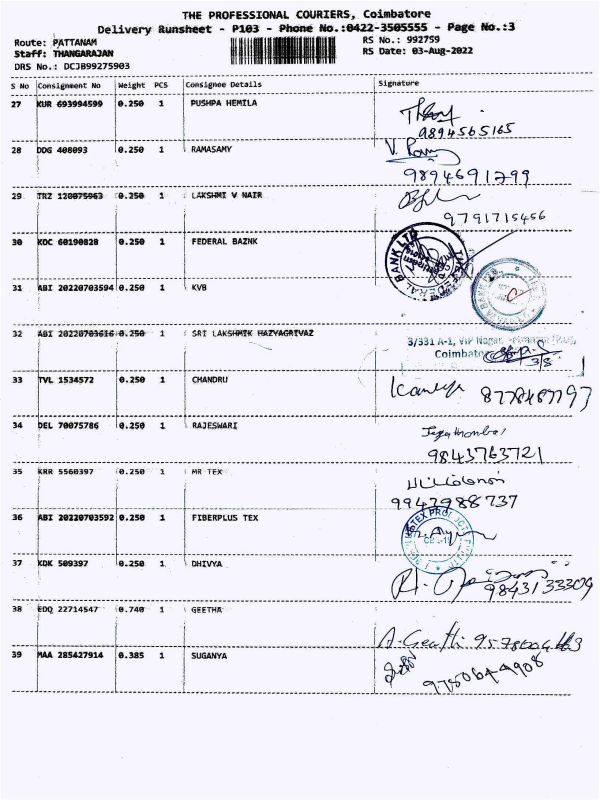 THE PROFESSIONAL COURIERS, Coimbatore
Delivery Runsheet - P103 - Phone No.:0422-3505555 - Page No.:3
Route: PATTANAM
RS No.: 992759
Staff: THANGARAJAN
RS Date: 03-Aug-2022
DRS No.: DCJB99275903
S No Consignment No Weight PCS Consignee Details Signature
27 KUR 693994599 0.250 1 PUSHPA HEMILA
9894565165
28 DDG 408093 0.250 1 RAMASAMY
V. Ramy
9894691299
29 TRZ 120875963 0.250 1 LAKSHMI V NAIR
9791715456
30 KOC 60190828 0.250 1 FEDERAL BAZNK
31 ABI 20220703594 0.250 1 KVB
32 ABI 20220703616 0.250 1 SRI LAKSHMIK HAZYAGRIVAZ
3/331 A-1, VIP Nagar,
Coimbatore
3/8
33 TVL 1534572 0.250 1 CHANDRU
8778487797
34 DEL 70075786 0.250 1 RAJESWARI
9843763721
35 KRR 5560397 0.250 1 MR TEX
9947988737
36 ABI 20220703592 0.250 1 FIBERPLUS TEX
37 KDK 509397 0.250 1 DHIVYA
9843133309
38 EDQ 22714547 0.740 1 GEETHA
A. Geethi
39 MAA 285427914 0.385 1 SUGANYA